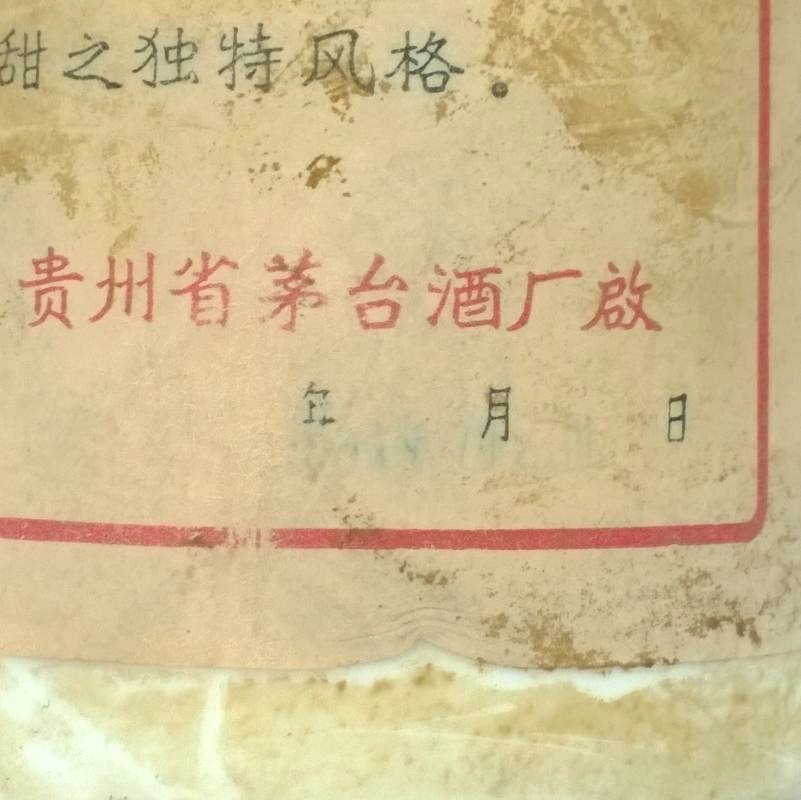 甜之独特风格。
贵州省茅台酒厂啟
年 月 日